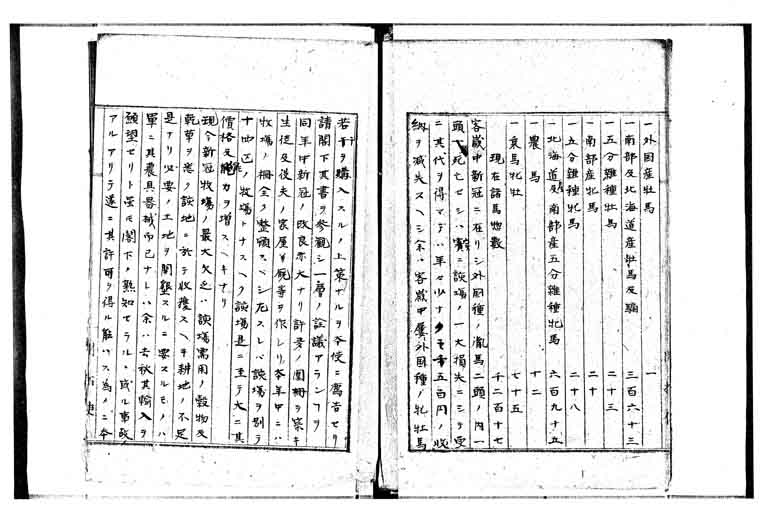 一外国産牡馬 一
一南部及北海道産牡馬及騸 三百六十三
一五分雑種牡馬 二十三
一南部産牝馬 二十
一五分雑種牝馬 二十八
一北海道及南部産五分雑種牝馬 六百九十五
一農馬 十二
一乗馬牝牡 七十五
現在諸馬惣数 千二百十七
客歳中新冠ニ在リシ外国種ノ胤馬二頭ノ内一
頭死亡セシハ実ニ該場ノ一大損失ニシテ更
ニ其代ヲ得マデハ年々少ナクモ五百円ノ收
納ヲ減失スヘシ余ハ客歳中屢外国種ノ牝牡馬
若干ヲ購入スルノ上策ナルヲ本使ニ寓告セリ
請閣下其書ヲ参観シ一層ノ詮議アランヿヲ
同年中新冠ノ改良亦大ナリ許多ノ圍柵ヲ築キ
生徒及役夫ノ家屋厩等ヲ作レリ本年中ニハ
牧場ノ柵全ク整頓スヘシ左スレバ該場ヲ別テ
十四区ノ牧場トナスヘク該場是ニ至テ大ニ其
價格及能力ヲ増スヘキナリ
現今新冠牧場ノ最大欠乏ハ該場需用ノ穀物及
乾草ヲ悉ク該地ニ於テ收穫スヘキ耕地ノ不足
是ナリ必要ノ土地ヲ開墾スルニ要スルモノハ
單ニ其農具器械而已ナレハ余ハ去秋其輸入ヲ
願望セリト虽モ閣下ノ熟知セラルヽ或ル事故
アルアリテ遂ニ其許可ヲ得ル能ハス為ノニ本